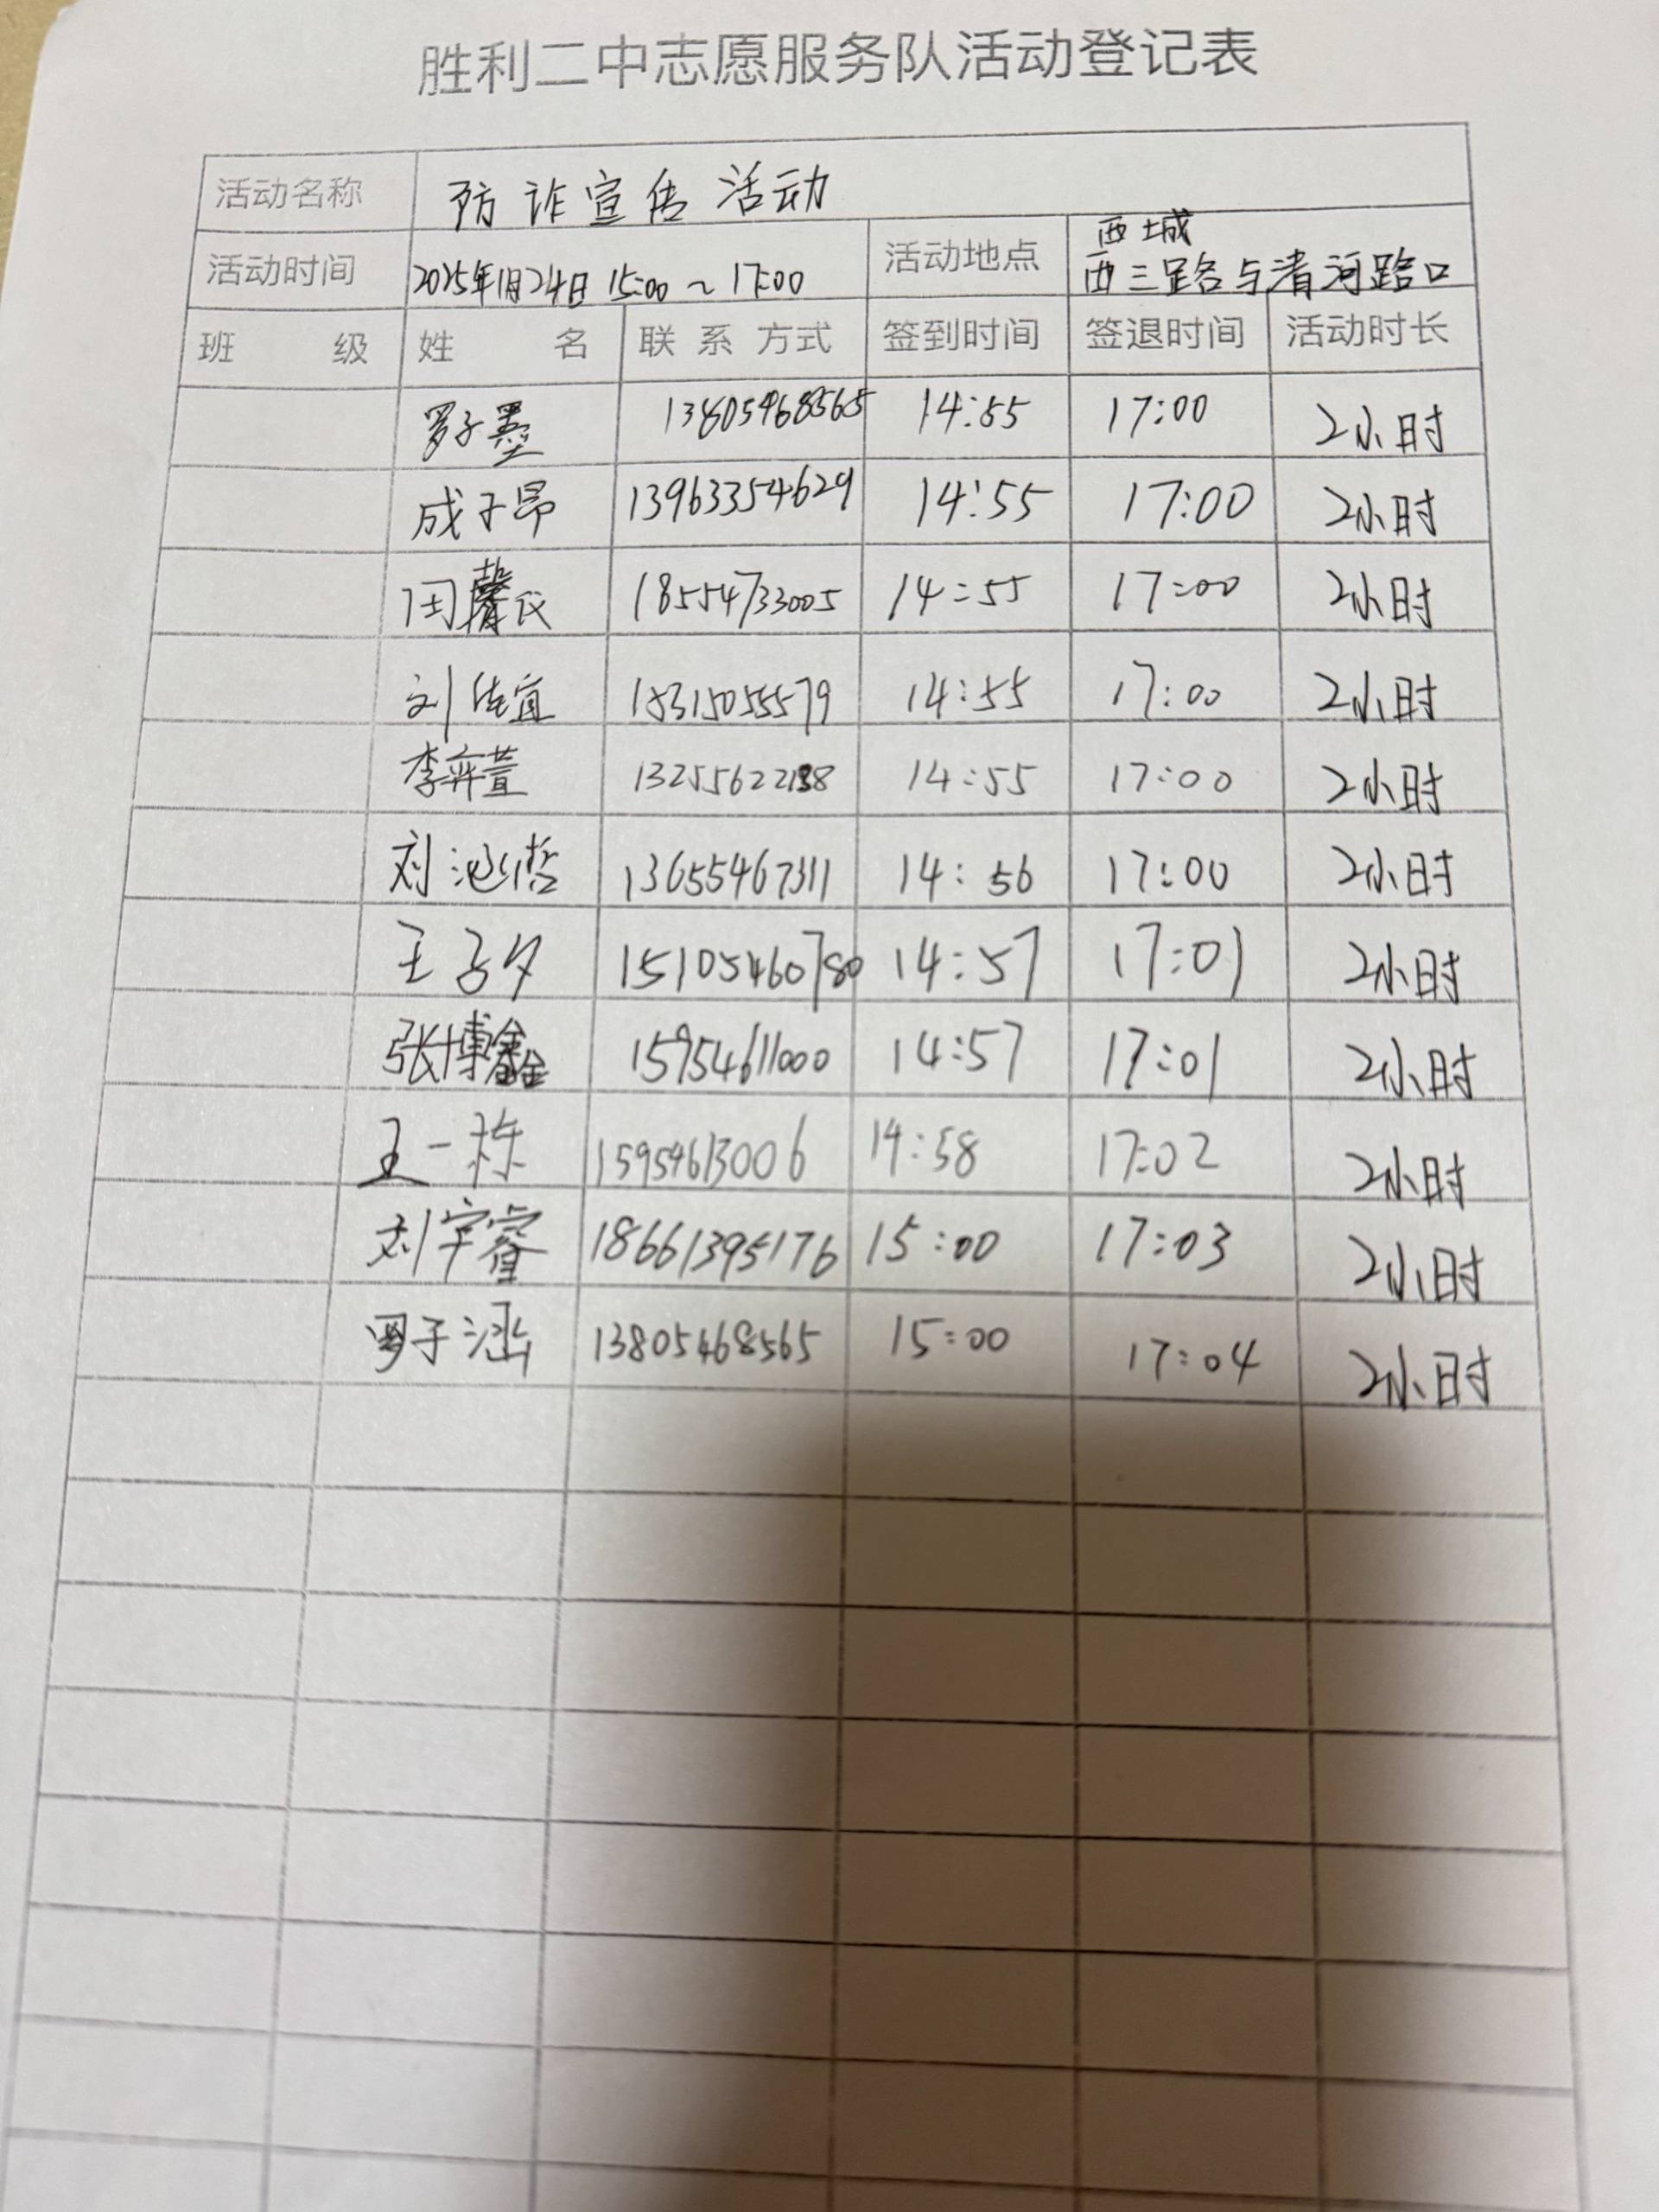 胜利二中志愿服务队活动登记表
活动名称 防诈宣传活动
活动时间 2025年1月24日 15:00~17:00 活动地点 西城 西三路与清河路口
班 级 姓 名 联系方式 签到时间 签退时间 活动时长
罗子墨 13805468565 14:55 17:00 2小时
成子昂 13963354629 14:55 17:00 2小时
闫馨仪 18554733005 14:55 17:00 2小时
刘佳宜 14:55 17:00 2小时
李弈萱 14:55 17:00 2小时
刘 13655467311 14:56 17:00 2小时
王子夕 15105460780 14:57 17:01 2小时
张博鑫 15954611000 14:57 17:01 2小时
王一栋 15954613006 14:58 17:02 2小时
刘宇睿 18661395176 15:00 17:03 2小时
罗子涵 13805468565 15:00 17:04 2小时